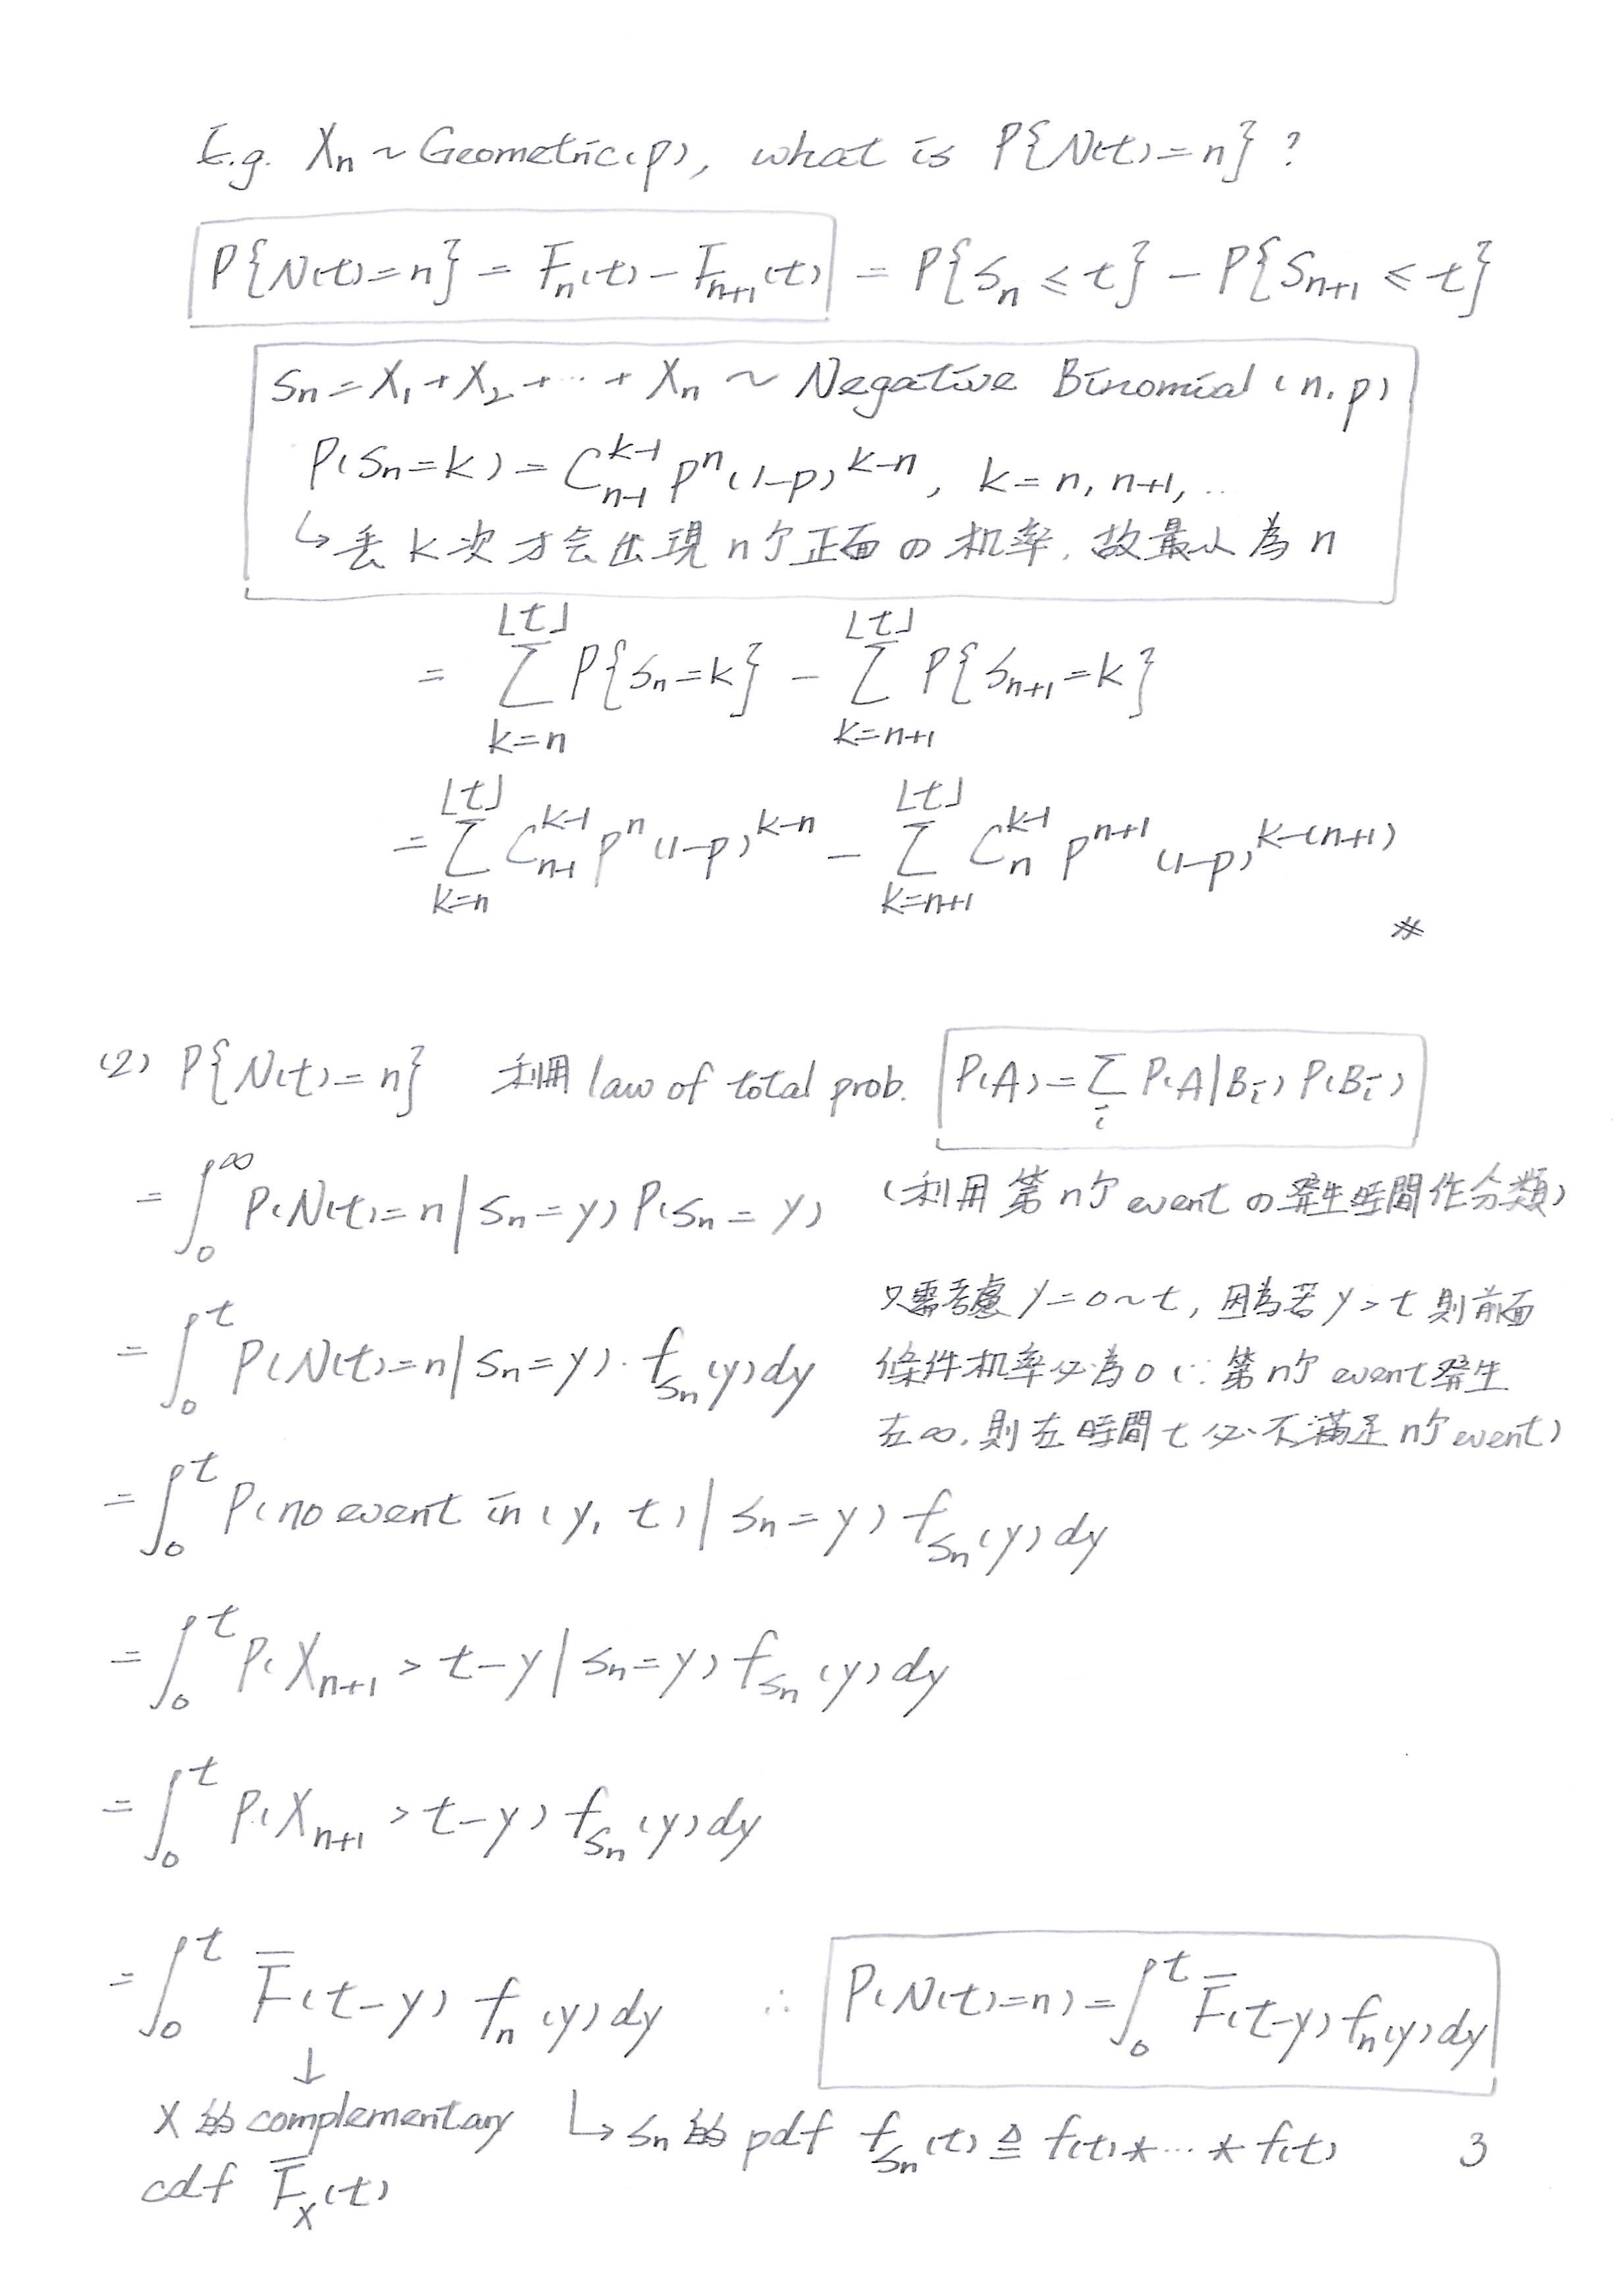 E.g. Xn ~ Geometric(p), what is P{N(t)=n} ?
P{N(t)=n} = Fn(t) - Fn+1(t) = P{Sn ≤ t} - P{Sn+1 ≤ t}
Sn = X1 + X2 + ... + Xn ~ Negative Binomial (n, p)
P(Sn=k) = C^{k-1}_{n-1} p^n (1-p)^{k-n}, k=n, n+1, ..
↳ 丢 k 次才会出現 n个正面の机率, 故最小為 n
= Σ_{k=n}^{⌊t⌋} P{Sn=k} - Σ_{k=n+1}^{⌊t⌋} P{Sn+1=k}
= Σ_{k=n}^{⌊t⌋} C^{k-1}_{n-1} p^n (1-p)^{k-n} - Σ_{k=n+1}^{⌊t⌋} C^{k-1}_{n} p^{n+1} (1-p)^{k-(n+1)}
#
(2) P{N(t)=n} 利用 law of total prob. P(A) = Σ_i P(A|Bi) P(Bi)
= ∫_0^∞ P(N(t)=n | Sn=y) P(Sn=y) (利用第n个 event の発生時間作分類)
= ∫_0^t P(N(t)=n | Sn=y) · f_{Sn}(y) dy
只需考慮 y=0~t, 因為若 y>t 則前面
條件机率必為0 (∵第n个 event 発生
在∞, 則在時間 t 必不滿足 n个 event)
= ∫_0^t P(no event in (y, t) | Sn=y) f_{Sn}(y) dy
= ∫_0^t P(Xn+1 > t-y | Sn=y) f_{Sn}(y) dy
= ∫_0^t P(Xn+1 > t-y) f_{Sn}(y) dy
= ∫_0^t F̄(t-y) fn(y) dy ∴ P(N(t)=n) = ∫_0^t F̄(t-y) fn(y) dy
↓
X 的 complementary
cdf F̄x(t)
↳ Sn 的 pdf f_{Sn}(t) ≜ f(t) * ... * f(t)
3